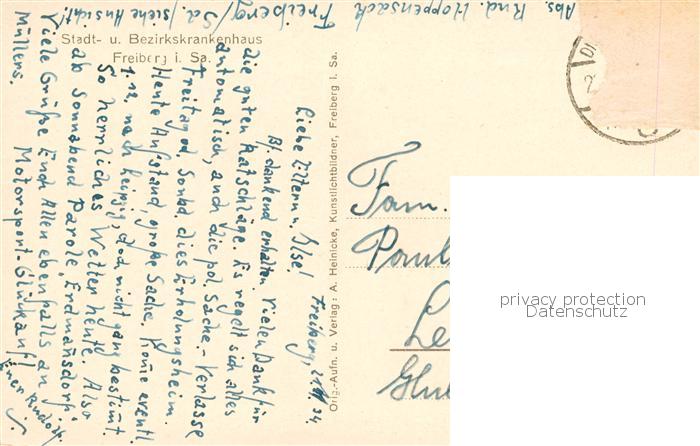 Abs. Rud. Hoppensack
Freiberg/Sa. (siehe Ansicht)
Stadt- u. Bezirkskrankenhaus
Freiberg i. Sa.
Freiberg, 21. 34.
Liebe Eltern u. Ilse!
Bf. dankend erhalten vielen Dank für
die guten Ratschläge. Es regelt sich alles
automatisch, auch die pol. Sache. - Verlasse
Freitag od. Sonbd. dies Erholungsheim.
Heute Aufstand, große Sache. Komme eventl.
nach Leipzig, doch nicht ganz bestimmt.
So herrliches Wetter heute. Also
ab Sonnabend Parole "Erdmansdorf".
Viele Grüße Euch Allen ebenfalls an
Müllers. Motorsport-Glückauf!
Euer Rudolf.
Orig.-Aufn. u. Verlag: A. Heinicke, Kunstlichtbildner, Freiberg i. Sa.
Fam.
Paul
Le
privacy protection
Datenschutz